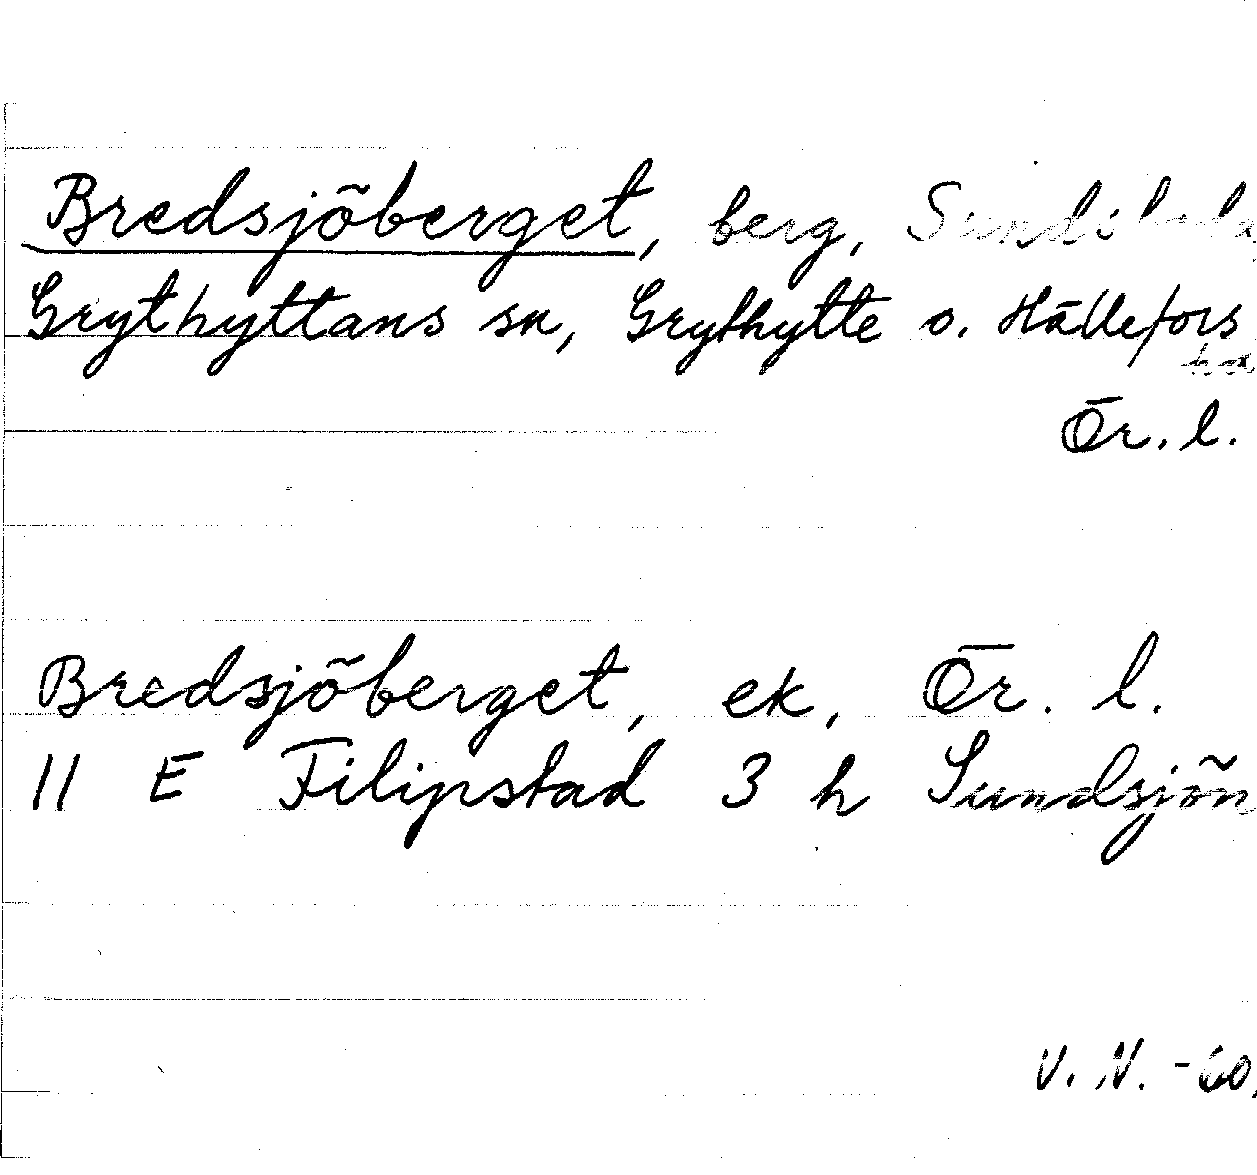 Bredsjöberget, berg,
Grythyttans sn, Grythytte o. Hällefors
hd,
Ör. l.
Bredsjöberget, ek, Ör. l.
11 E Filipstad 3 h Sundsjön
V. N. -60.